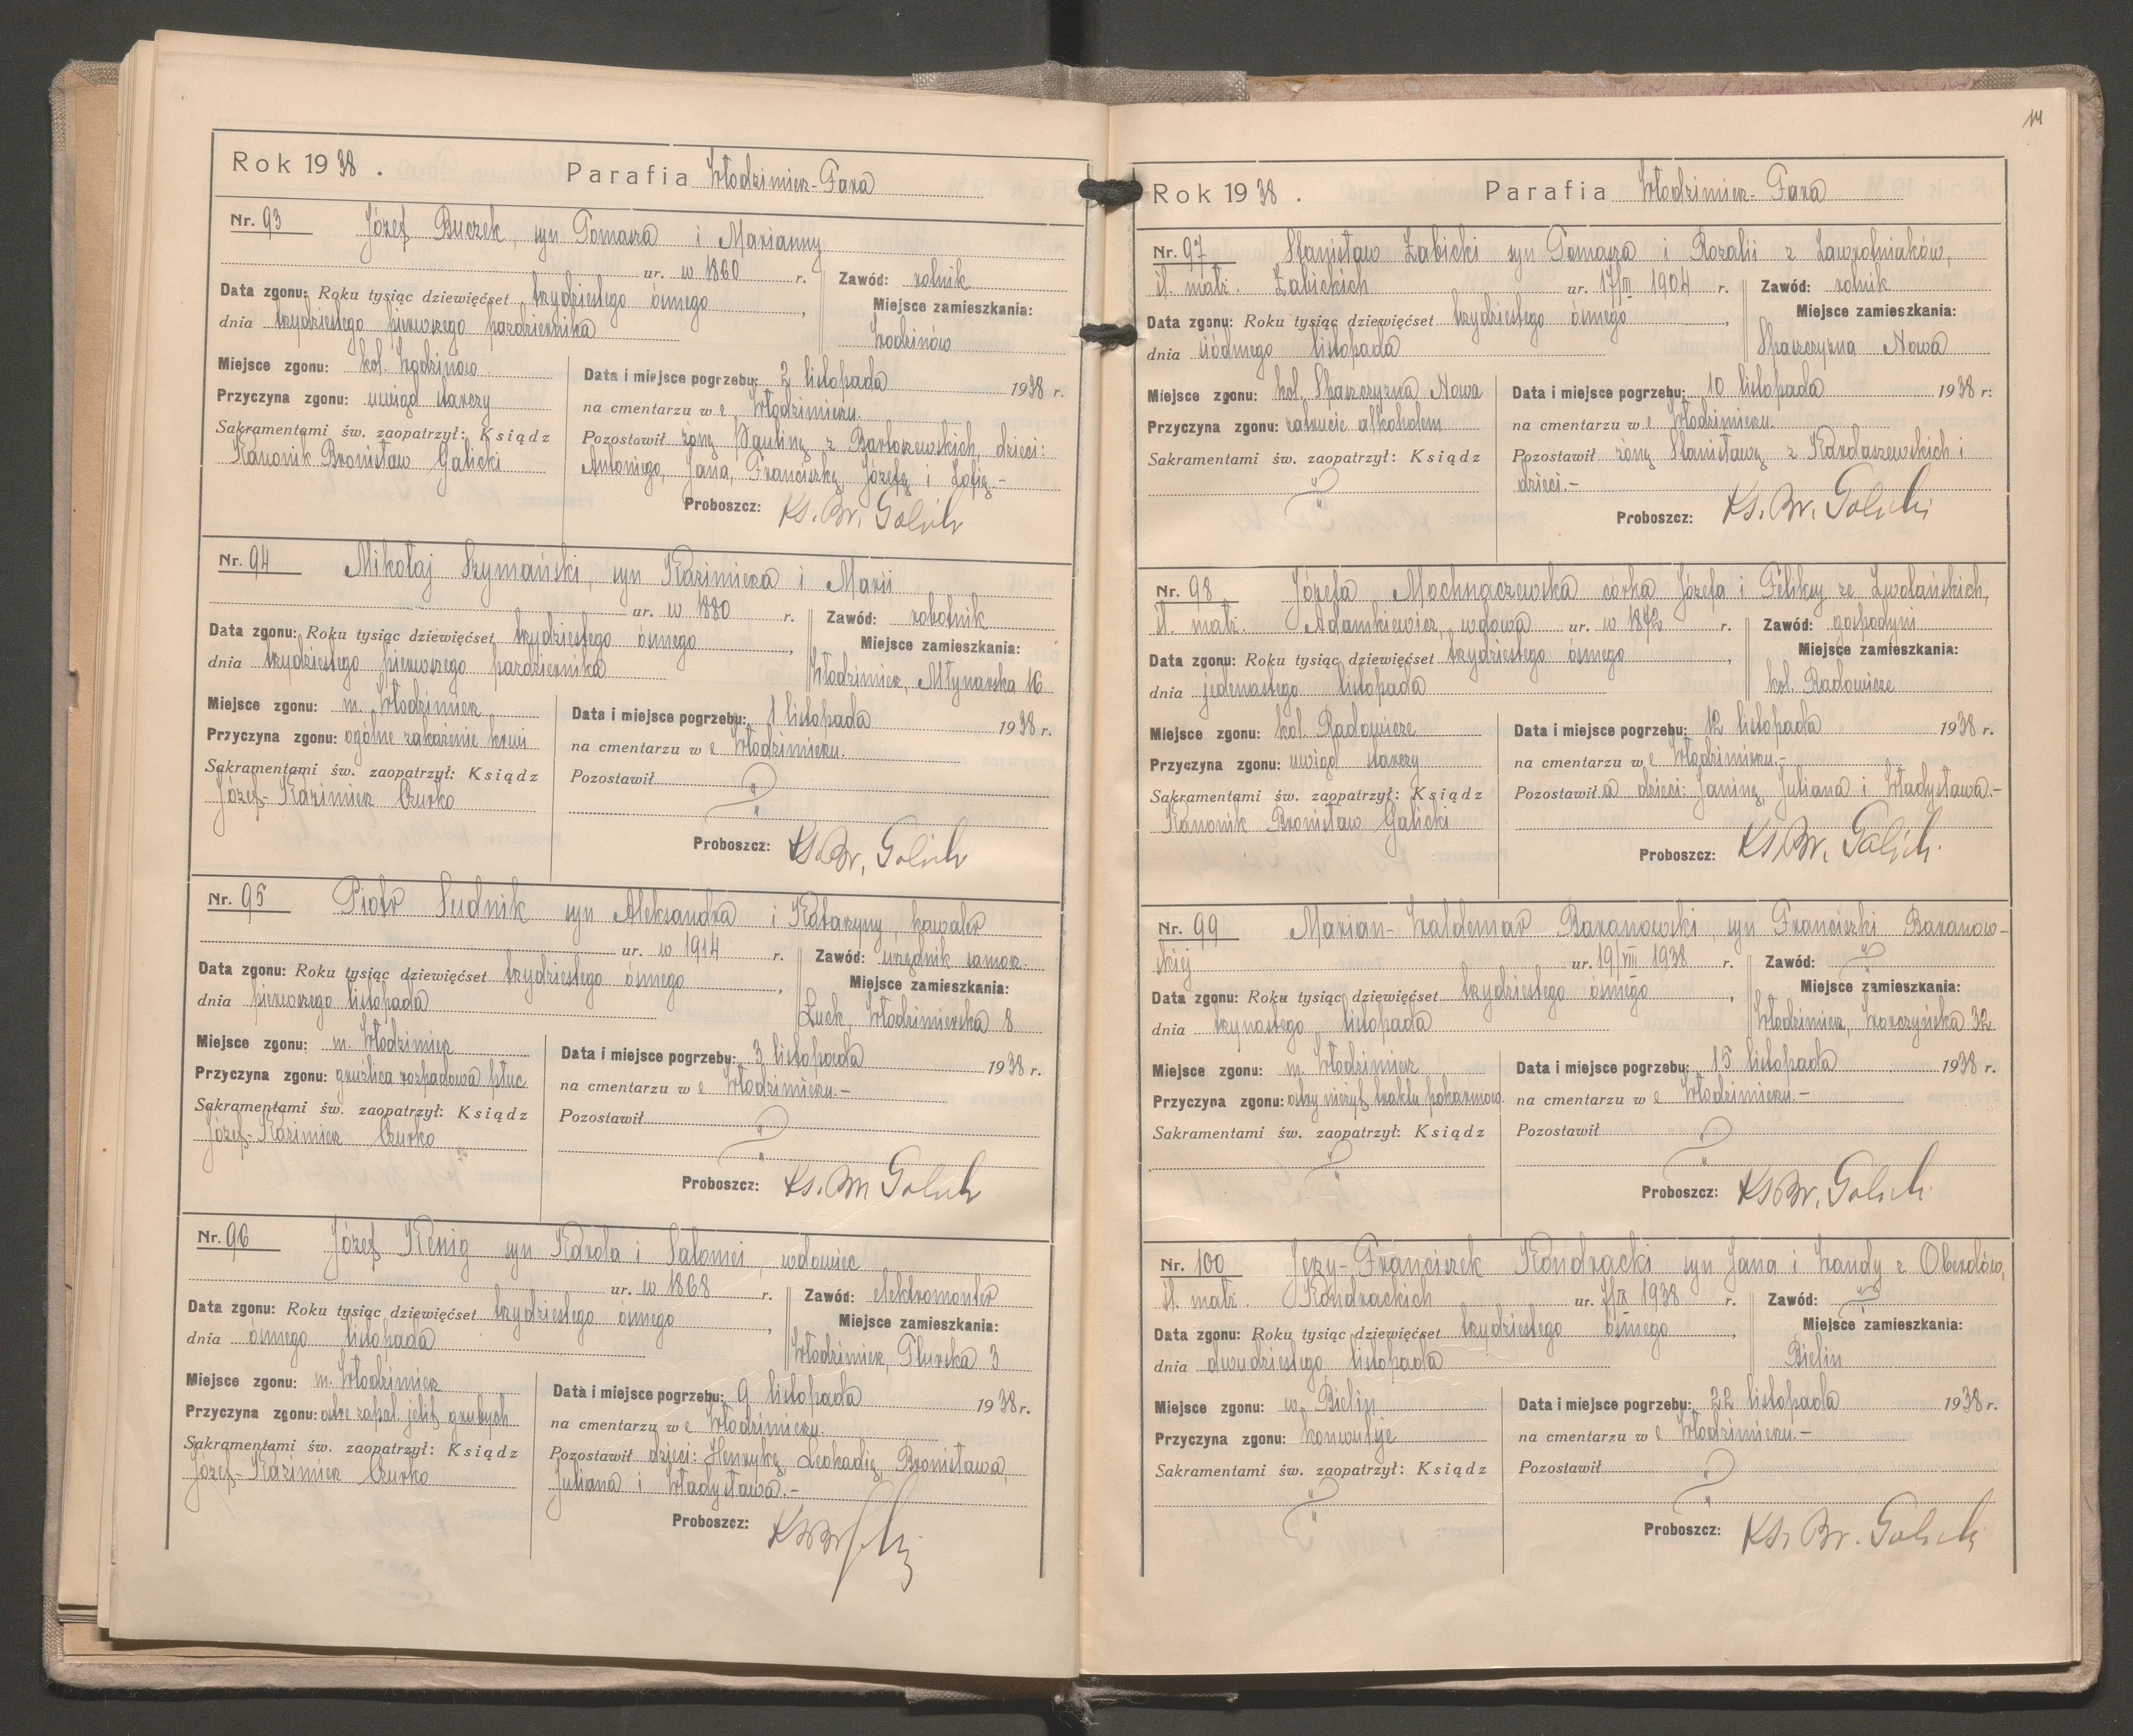 Rok 1938. Parafia Włodzimierz-Fara
Nr. 93 Józef Buczek, syn Tomasza i Marianny
ur. w 1860 r. Zawód: rolnik
Data zgonu: Roku tysiąc dziewięćset trzydziestego ósmego,
Miejsce zamieszkania:
dnia trzydziestego pierwszego października
Wodzinów
Miejsce zgonu: kol. Wodzinów
Data i miejsce pogrzebu: 2 listopada 1938 r.
Przyczyna zgonu: uwiąd starczy
na cmentarzu we Włodzimierzu.
Sakramentami św. zaopatrzył: Ksiądz
Pozostawił żonę Paulinę z Bartoszewskich, dzieci:
Kanonik Bronisław Galicki
Antoniego, Jana, Franciszkę, Józefę i Zofię.-
Proboszcz: Ks. Br. Galicki
Nr. 94 Mikołaj Szymański, syn Kazimierza i Marii
ur. w 1880 r. Zawód: robotnik
Data zgonu: Roku tysiąc dziewięćset trzydziestego ósmego,
Miejsce zamieszkania:
dnia trzydziestego pierwszego października
Włodzimierz, Młynarska 16
Miejsce zgonu: m. Włodzimierz
Data i miejsce pogrzebu: 1 listopada 1938 r.
Przyczyna zgonu: ogólne zakażenie krwi
na cmentarzu we Włodzimierzu.
Sakramentami św. zaopatrzył: Ksiądz
Pozostawił "
Józef-Kazimierz Czurko
"
Proboszcz: Ks. Br. Galicki
Nr. 95 Piotr Sudnik syn Aleksandra i Katarzyny, kawaler
ur. w 1914 r. Zawód: urzędnik samorz.
Data zgonu: Roku tysiąc dziewięćset trzydziestego ósmego,
Miejsce zamieszkania:
dnia pierwszego listopada
Łuck, Włodzimierska 8
Miejsce zgonu: m. Włodzimierz
Data i miejsce pogrzebu: 3 listopada 1938 r.
Przyczyna zgonu: gruźlica rozpadowa płuc
na cmentarzu we Włodzimierzu.-
Sakramentami św. zaopatrzył: Ksiądz
Pozostawił "
Józef-Kazimierz Czurko
"
Proboszcz: Ks. Br. Galicki
Nr. 96 Józef Kenig syn Karola i Salomei, wdowiec
ur. w 1868 r. Zawód: elektromonter
Data zgonu: Roku tysiąc dziewięćset trzydziestego ósmego,
Miejsce zamieszkania:
dnia ósmego listopada
Włodzimierz, 3
Miejsce zgonu: m. Włodzimierz
Data i miejsce pogrzebu: 9 listopada 1938 r.
Przyczyna zgonu: ostre zapal. jelit grubych
na cmentarzu we Włodzimierzu.
Sakramentami św. zaopatrzył: Ksiądz
Pozostawił dzieci: Henrykę, Leokadię, Bronisława,
Józef-Kazimierz Czurko
Juliana i Władysława.-
Proboszcz: Ks. Br.
14
Rok 1938. Parafia Włodzimierz-Fara
Nr. 97 Stanisław Żabicki syn Tomasza i Rozalii z Zawrotniaków,
śl. małż. Żabickich ur. 1904 r. Zawód: rolnik
Data zgonu: Roku tysiąc dziewięćset trzydziestego ósmego,
Miejsce zamieszkania:
dnia siódmego listopada
Nowa
Miejsce zgonu: kol. Nowa
Data i miejsce pogrzebu: 10 listopada 1938 r.
Przyczyna zgonu: zatrucie alkoholem
na cmentarzu we Włodzimierzu.
Sakramentami św. zaopatrzył: Ksiądz
Pozostawił żonę Stanisławę z Kardaszewskich i
"
dzieci.-
Proboszcz: Ks. Br. Galicki
Nr. 98 Józefa Mochnaczewska córka Józefa i Feliksy ze Zwolańskich,
śl. małż. Adamkiewicz, wdowa ur. w 1872 r. Zawód: gospodyni
Data zgonu: Roku tysiąc dziewięćset trzydziestego ósmego,
Miejsce zamieszkania:
dnia jedenastego listopada
kol. Radowicze
Miejsce zgonu: kol. Radowicze
Data i miejsce pogrzebu: 12 listopada 1938 r.
Przyczyna zgonu: uwiąd starczy
na cmentarzu we Włodzimierzu.-
Sakramentami św. zaopatrzył: Ksiądz
Pozostawiła dzieci: Janinę, Juliana i Władysława.-
Kanonik Bronisław Galicki
Proboszcz: Ks. Br. Galicki
Nr. 99 Marian-Waldemar Baranowski, syn Franciszki Baranow-
skiej ur. 19/VIII 1938 r. Zawód: "
Data zgonu: Roku tysiąc dziewięćset trzydziestego ósmego,
Miejsce zamieszkania:
dnia trzynastego listopada
Włodzimierz, 32
Miejsce zgonu: m. Włodzimierz
Data i miejsce pogrzebu: 15 listopada 1938 r.
Przyczyna zgonu: ostry nieżyt traktu pokarmow.
na cmentarzu we Włodzimierzu.-
Sakramentami św. zaopatrzył: Ksiądz
Pozostawił "
"
Proboszcz: Ks. Br. Galicki
Nr. 100 Jerzy-Franciszek Kondracki syn Jana i Wandy z Oberdów,
śl. małż. Kondrackich ur. 7/IX 1938 r. Zawód: "
Data zgonu: Roku tysiąc dziewięćset trzydziestego ósmego,
Miejsce zamieszkania:
dnia dwudziestego listopada
Bielin
Miejsce zgonu: w. Bielin
Data i miejsce pogrzebu: 22 listopada 1938 r.
Przyczyna zgonu: konwulsje
na cmentarzu we Włodzimierzu.-
Sakramentami św. zaopatrzył: Ksiądz
Pozostawił "
"
Proboszcz: Ks. Br. Galicki